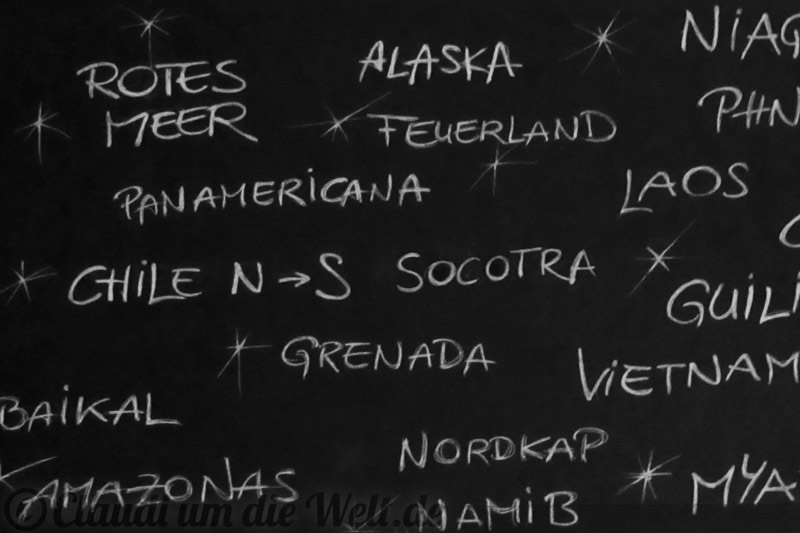 NIAG
ROTES
MEER
ALASKA
PHN
FEUERLAND
PANAMERICANA
LAOS
CHILE N→S
SOCOTRA
GUILI
GRENADA
VIETNAM
BAIKAL
NORDKAP
AMAZONAS
MYA
NAMIB
© Claudi um die Welt.de